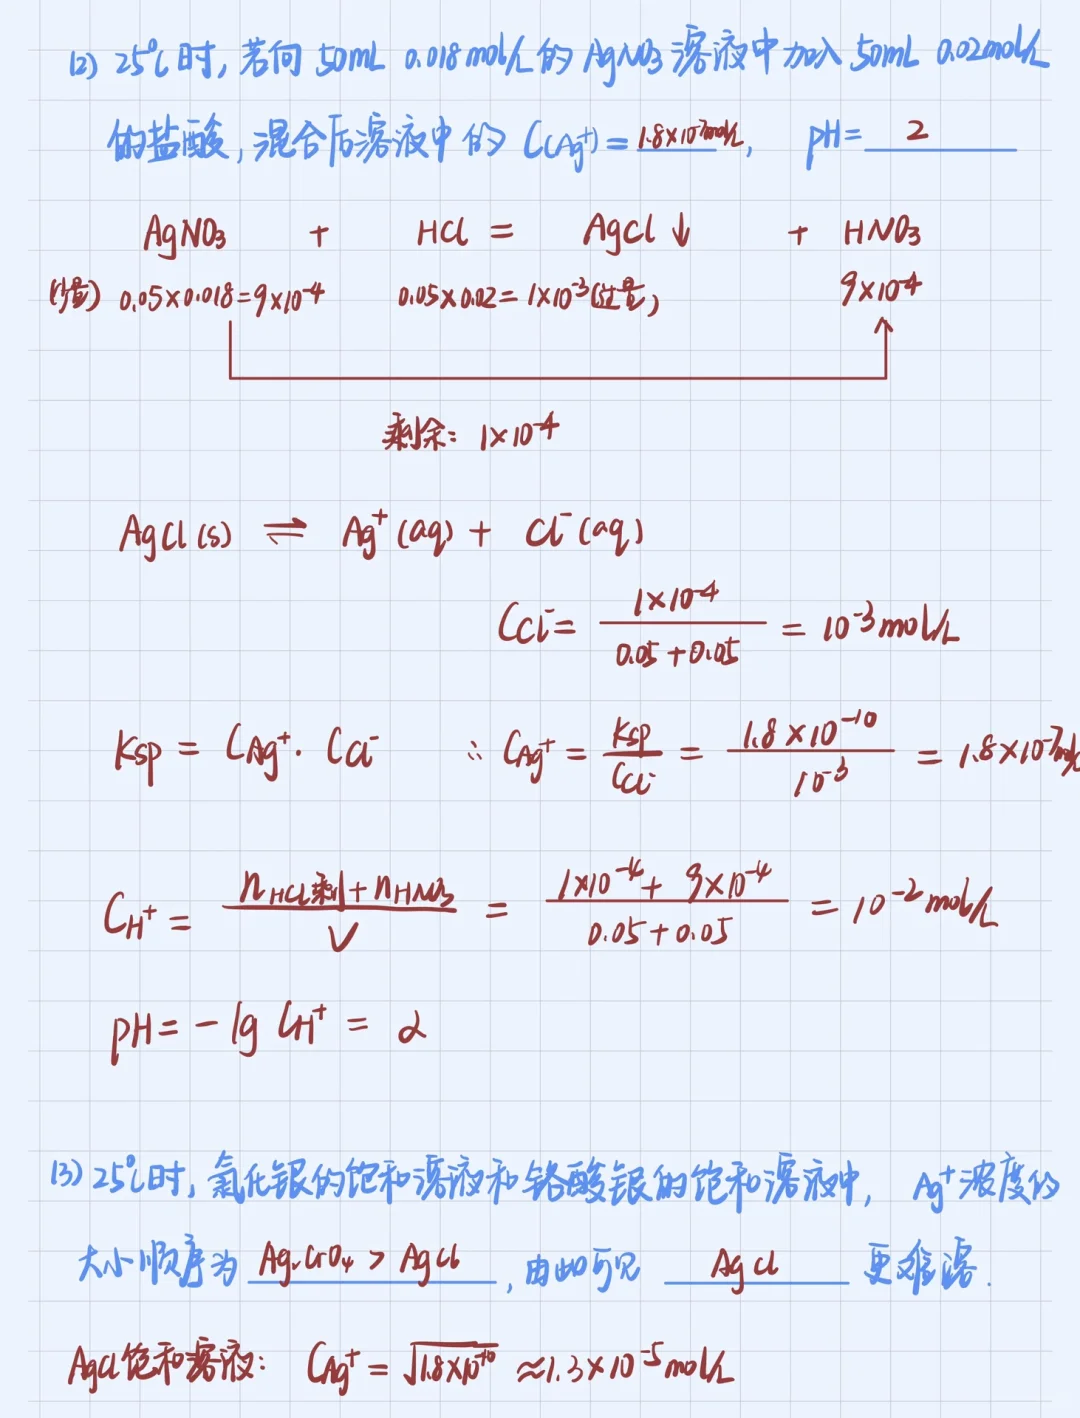 (2) 25℃时, 若向 50mL 0.018mol/L的 AgNO3 溶液中加入 50mL 0.02mol/L
的盐酸, 混合后溶液中的 C(Ag⁺)= 1.8×10⁻⁷mol/L, pH= 2
AgNO3 + HCl = AgCl↓ + HNO3
(少量) 0.05×0.018=9×10⁻⁴ 0.05×0.02=1×10⁻³(过量) 9×10⁻⁴
剩余: 1×10⁻⁴
AgCl(s) ⇌ Ag⁺(aq) + Cl⁻(aq)
CCl⁻ = 1×10⁻⁴ / 0.05+0.05 = 10⁻³mol/L
Ksp = CAg⁺ · CCl⁻ ∴ CAg⁺ = Ksp / CCl⁻ = 1.8×10⁻¹⁰ / 10⁻³ = 1.8×10⁻⁷mol/L
CH⁺ = nHCl剩 + nHNO3 / V = 1×10⁻⁴ + 9×10⁻⁴ / 0.05+0.05 = 10⁻²mol/L
pH = -lg CH⁺ = 2
(3) 25℃时, 氯化银的饱和溶液和铬酸银的饱和溶液中, Ag⁺浓度的
大小顺序为 Ag2CrO4 > AgCl, 由此可见 AgCl 更难溶.
AgCl饱和溶液: CAg⁺ = √1.8×10⁻¹⁰ ≈1.3×10⁻⁵mol/L